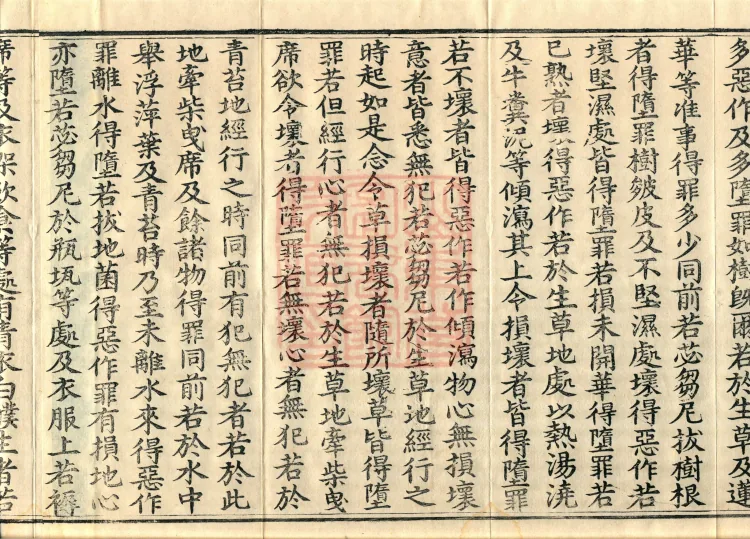 多惡作及多墮罪如樹既爾若於生草及蓮
華等准事得罪多少同前若苾芻尼拔樹根
者得墮罪樹皴皮及不堅濕處壞得惡作若
壞堅濕處皆得墮罪若損未開華得墮罪若
已熟者壞得惡作若於生草地處以熱湯澆
及牛糞泥等傾瀉其上令損壞者皆得墮罪
若不壞者皆得惡作若作傾瀉物心無損壞
意者皆悉無犯若苾芻尼於生草地經行之
時起如是念令草損壞者隨所壞草皆得墮
罪若但經行心者無犯若於生草地牽柴曳
席欲令壞者得墮罪若無壞心者無犯若於
青苔地經行之時同前有犯無犯者若於此
地牽柴曳席及餘諸物得罪同前若於水中
舉浮萍葉及青苔時乃至未離水來得惡作
罪離水得墮若拔地菌得惡作罪有損地心
亦墮若苾芻尼於瓶瓨等處及衣服上若褥
席等及衣架飲食等處有青衣白醭生者若